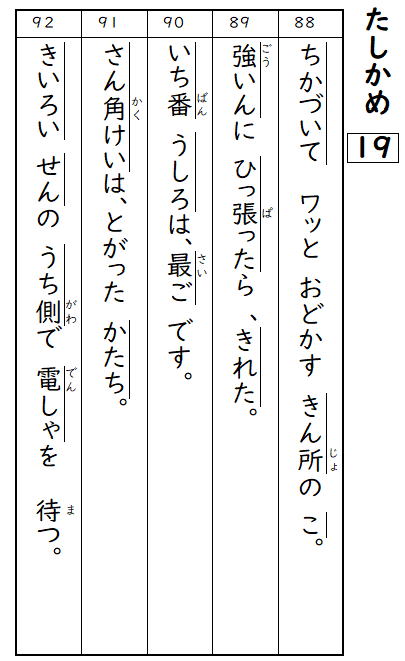 たしかめ 19
88
ちかづいて ワッと おどかす きん所の こ。
じょ
89
強いんに ひっ張ったら、きれた。
ごう
ぱ
90
いち番 うしろは、最ご です。
ばん
さい
91
さん角けいは、とがった かたち。
かく
92
きいろい せんの うち側で 電しゃを 待つ。
がわ
でん
ま